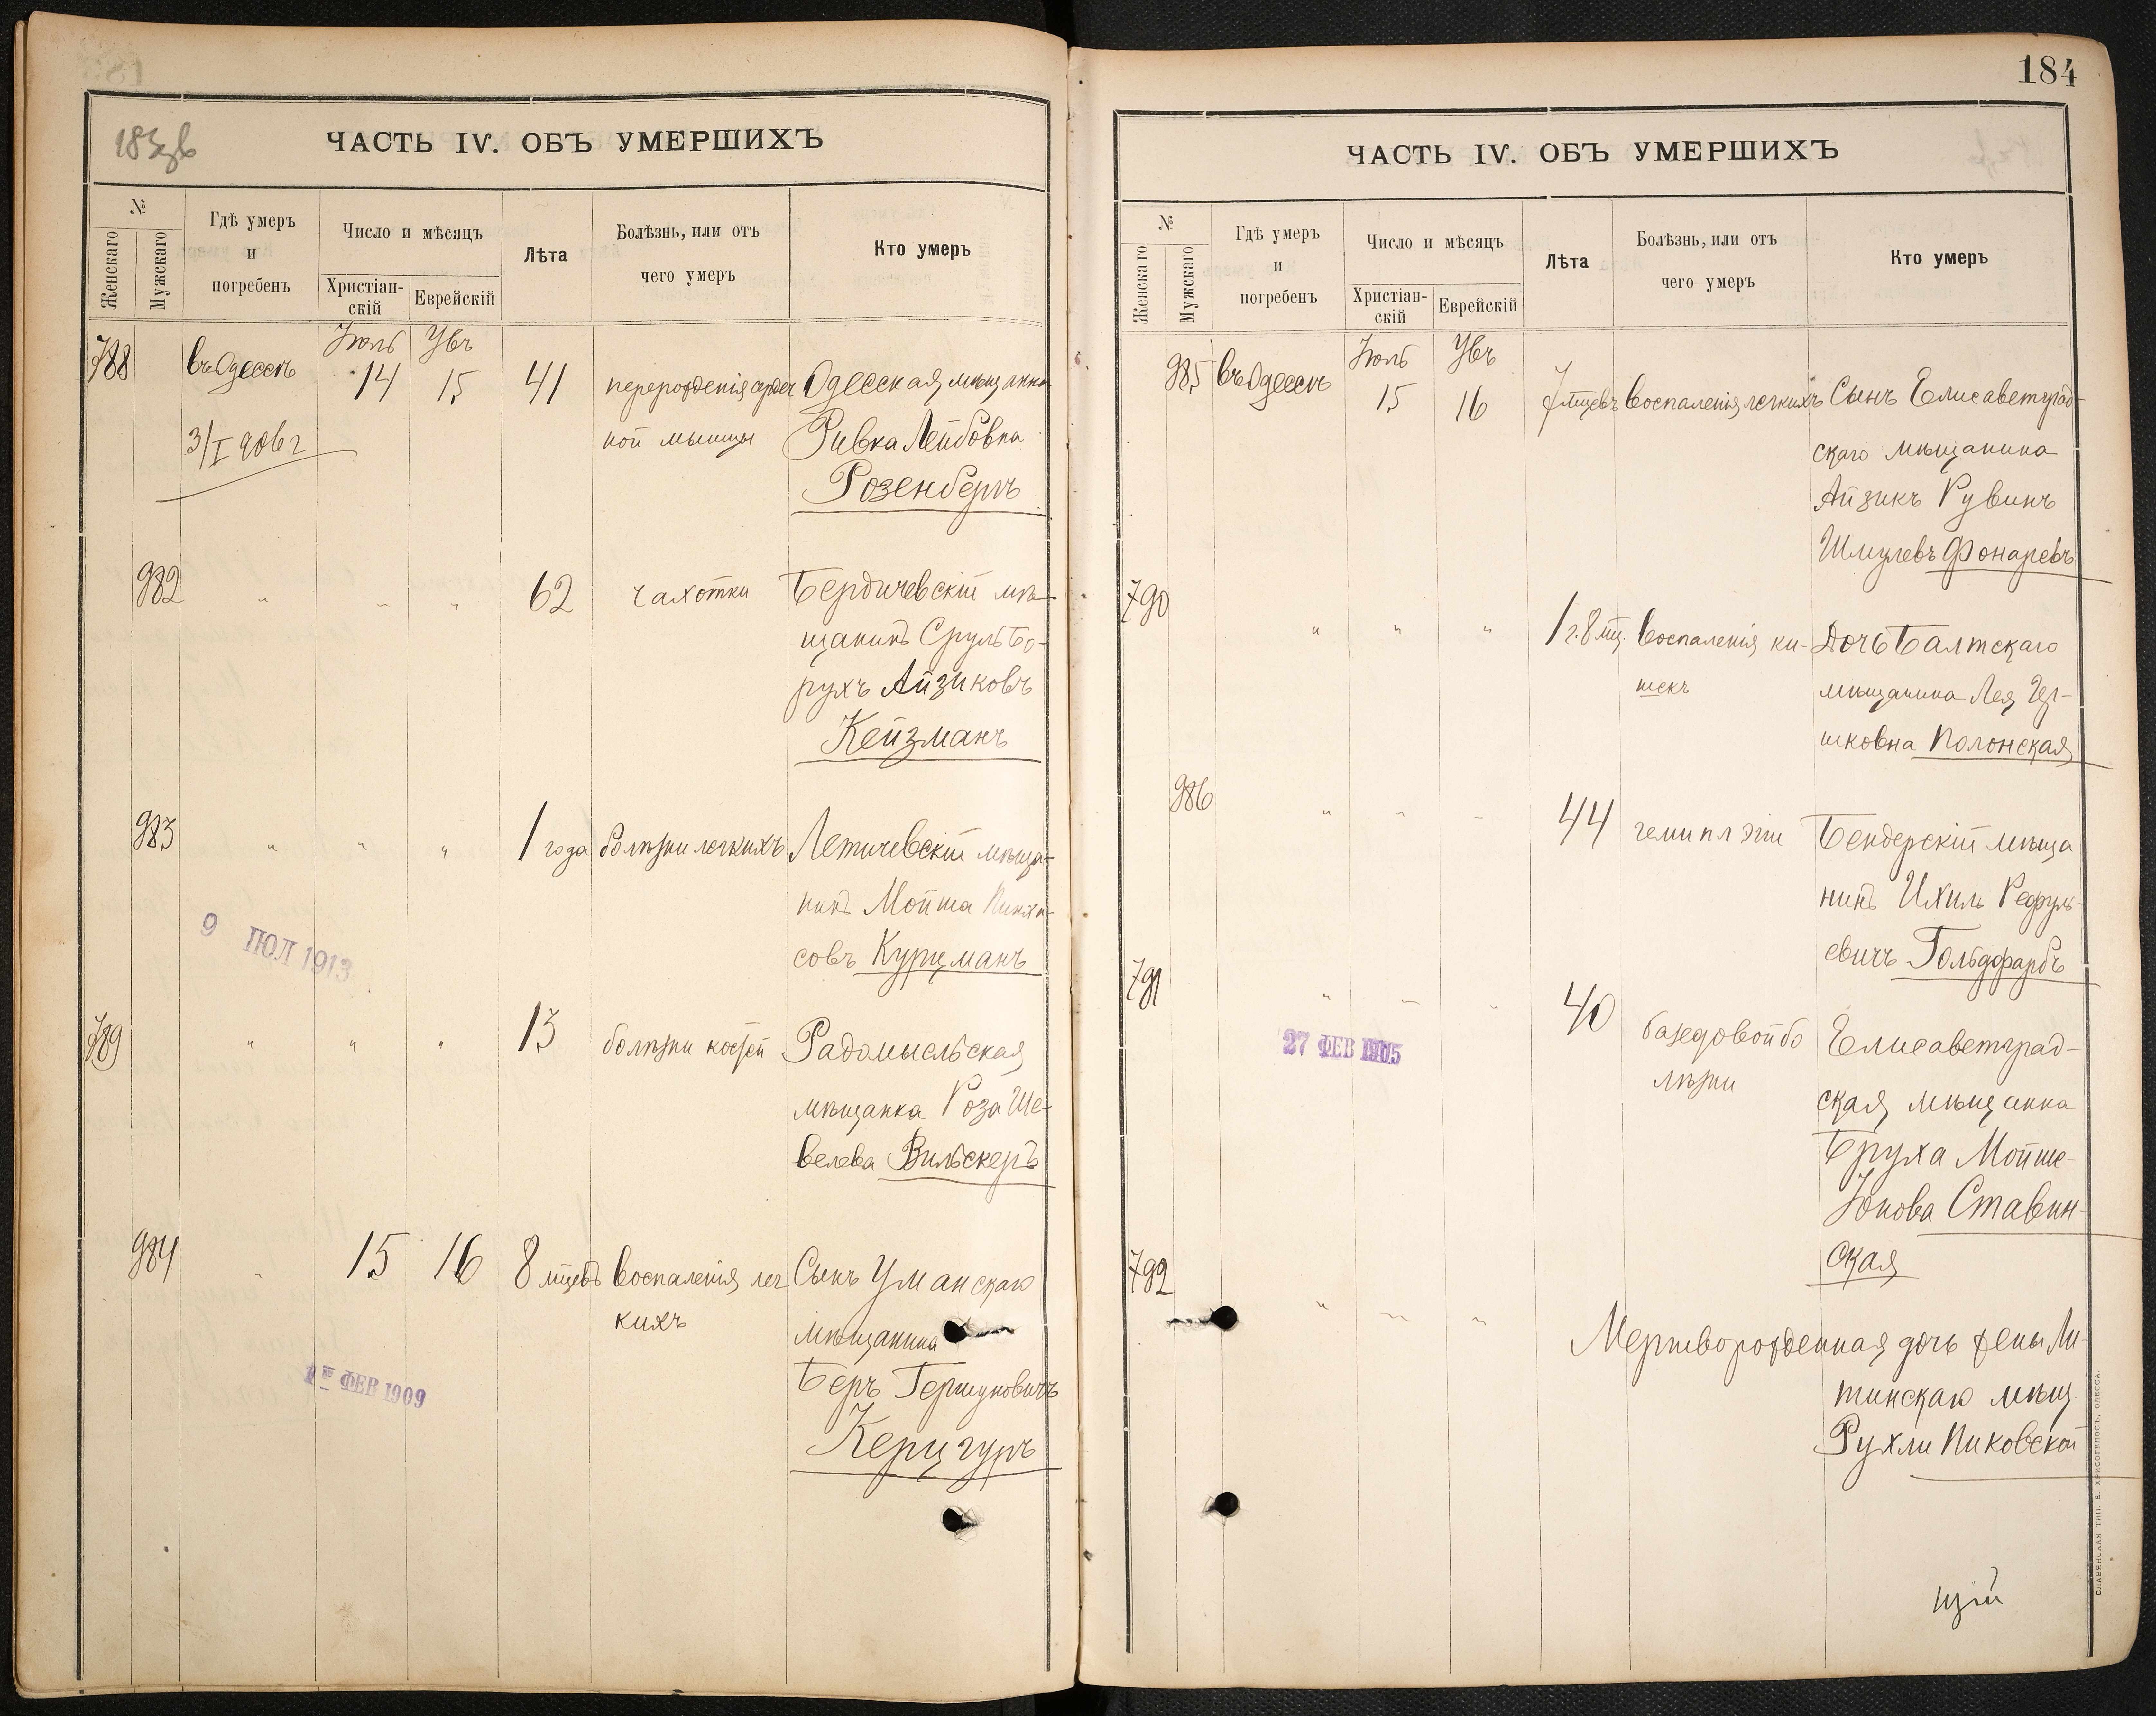 183 об
ЧАСТЬ IV. ОБЪ УМЕРШИХЪ
№
Женскаго
Мужскаго
Гдѣ умеръ
и
погребенъ
Число и мѣсяцъ
Христіан-
скій
Еврейскій
Лѣта
Болѣзнь, или отъ
чего умеръ
Кто умеръ
Іюль
788
въ Одессѣ
14
15
41
перерожденія сердеч
ной мышцы
Одесская мѣщанка
Ривка Лейбовна
Розенбергъ
3/I 906 г
982
" " "
62
чахотки
Бердичевскій мѣ-
щанинъ Сруль Бо-
рухъ Айзиковъ
Кейзманъ
983
" " "
1 года
болѣзни легкихъ
Летичевскій мѣща-
нинъ Мойша Пинха-
совъ Курцманъ
9 ІЮЛ 1913
789
" " "
13
болѣзни костей
Радомысльская
мѣщанка Роза Ше-
велева Вильскеръ
984
"
15
16
8 мцевъ
воспаленія лег
кихъ
Сынъ Уманскаго
мѣщанина
Беръ Гершуновичъ
Керцгуръ
ФЕВ 1909
184
ЧАСТЬ IV. ОБЪ УМЕРШИХЪ
№
Женскаго
Мужскаго
Гдѣ умеръ
и
погребенъ
Число и мѣсяцъ
Христіан-
скій
Еврейскій
Лѣта
Болѣзнь, или отъ
чего умеръ
Кто умеръ
Іюль
985
въ Одессѣ
15
16
7 мцевъ
воспаленія легкихъ
Сынъ Елисаветград-
скаго мѣщанина
Айзикъ Рувинъ
Шмулевъ Фонаревъ
790
" " "
1 г. 8 мц.
воспаленія ки-
шекъ
Дочь Балтскаго
мѣщанина Лея Гер-
шковна Полонская
986
" " "
44
гемиплэгіи
Бендерскій мѣща
нинъ Ихиль Рефуль-
евичъ Гольдфарбъ
791
" " "
40
базедовой бо
лѣзни
Елисаветград-
ская мѣщанка
Бруха Мойше-
Іонова Ставин-
ская
27 ФЕВ
792
" " "
Мертворожденная дочь жены Ли-
тинскаго мѣщ.
Рухли Пиковской
СЛАВЯНСКАЯ ТИП. Е. ХРИСОГЕЛОСЪ, ОДЕССА.